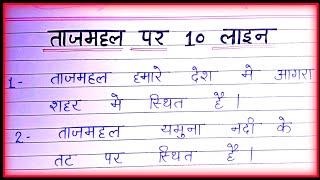 ताजमहल पर 10 लाइन
1- ताजमहल हमारे देश मे आगरा
शहर मे स्थित है।
2- ताजमहल यमुना नदी के
तट पर स्थित है।